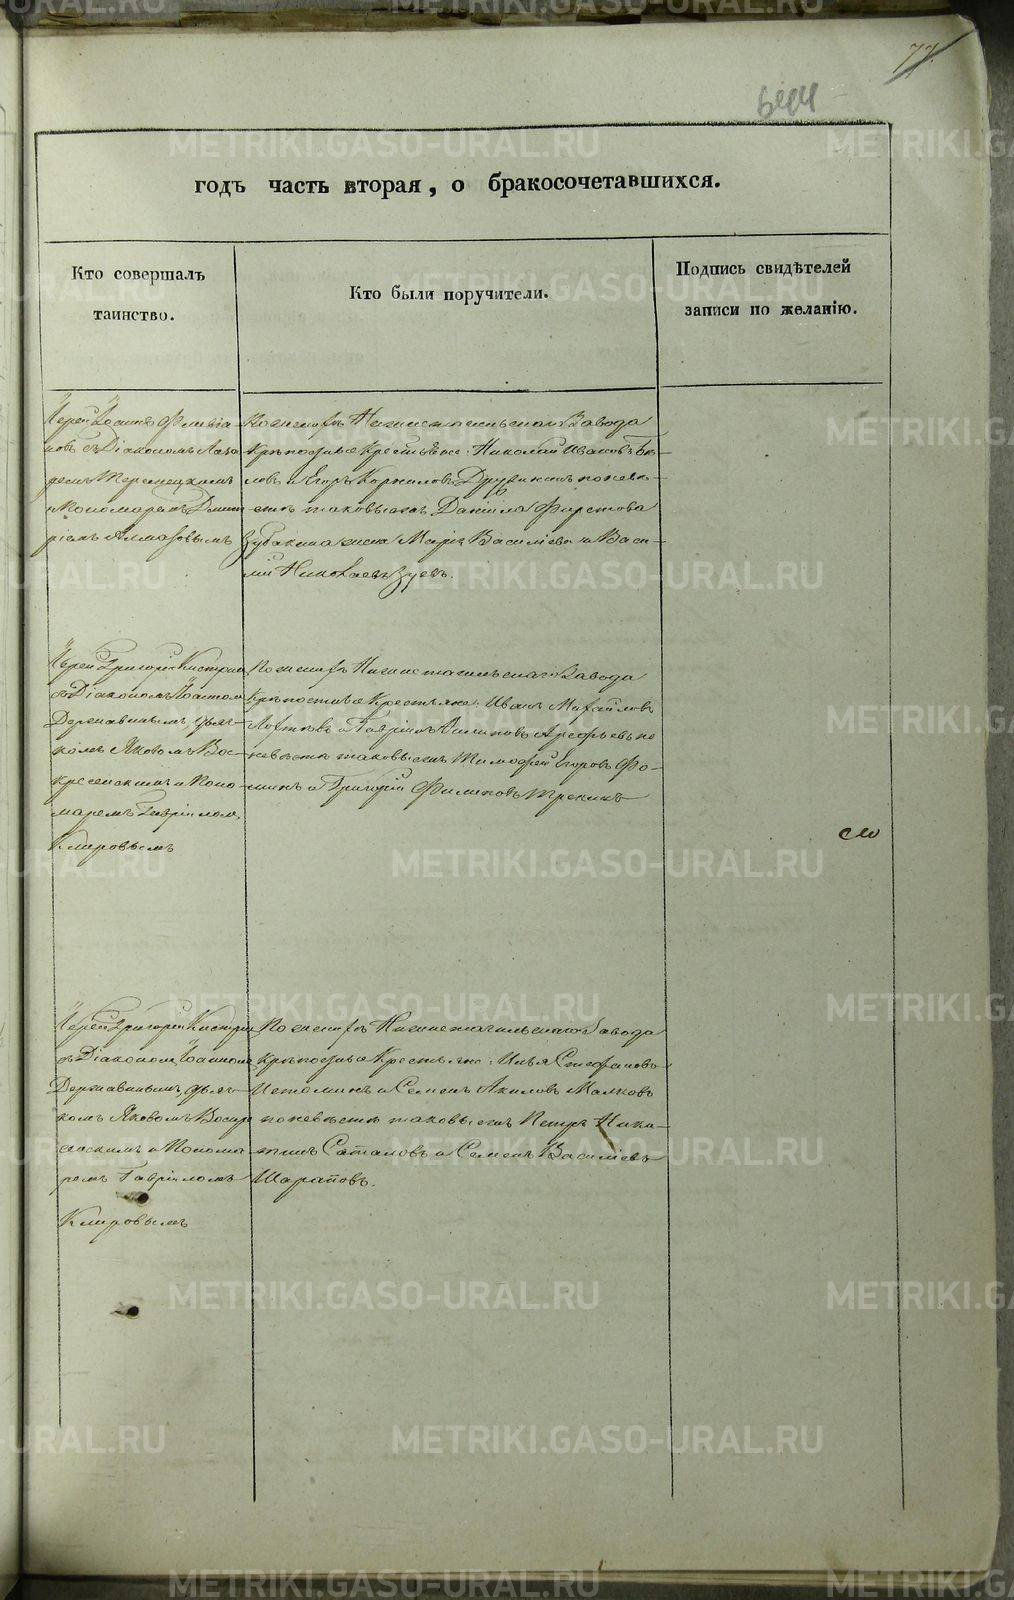 77
644
годъ часть вторая, о бракосочетавшихся.
Кто совершалъ
таинство.
Кто были поручители.
Подпись свидѣтелей
записи по желанію.
Іерей Іоаннъ Флавіа-
новъ съ Діакономъ Лаза
ремъ
и Пономаремъ Дмит
ріемъ Алмазовымъ
По женихѣ Нижнетагильскаго Завода
Крѣпостные Крестьяне: Николай Ивановъ Бѣ-
ловъ и Егоръ Корниловъ поневѣ-
стѣ таковыежъ Данила Фирстова
Зубакина жена Марія Васильева и Васи-
лій Николаевъ Зуевъ.
Іерей Григорій
съ Діакономъ Іоанномъ
Державинымъ, дьяч-
комъ Яковомъ Вос-
кресенскимъ и Поно-
маремъ Гавріиломъ
Кипровымъ
По женихѣ Нижнетагильскаго Завода
Крѣпостные Крестьяне: Иванъ Михайловъ
и Гавріилъ Арефьевъ по
невѣстѣ таковыежъ Тимофей Егоровъ Фо-
минъ и Григорій Филиповъ
Іерей Григорій
съ Діакономъ Іоанномъ
Державинымъ, дьяч-
комъ Яковомъ Воскре
сенскимъ и Понома
ремъ Гавріиломъ
Кипровымъ
По женихѣ Нижнетагильскаго Завода
Крѣпостные Крестьяне: Илья Стефановъ
Истоминъ и Семенъ Акиловъ Малковъ
поневѣстѣ таковыежъ Петръ Ники-
тинъ и Семенъ Васильевъ
Шараповъ.
METRIKI.GASO-URAL.RU